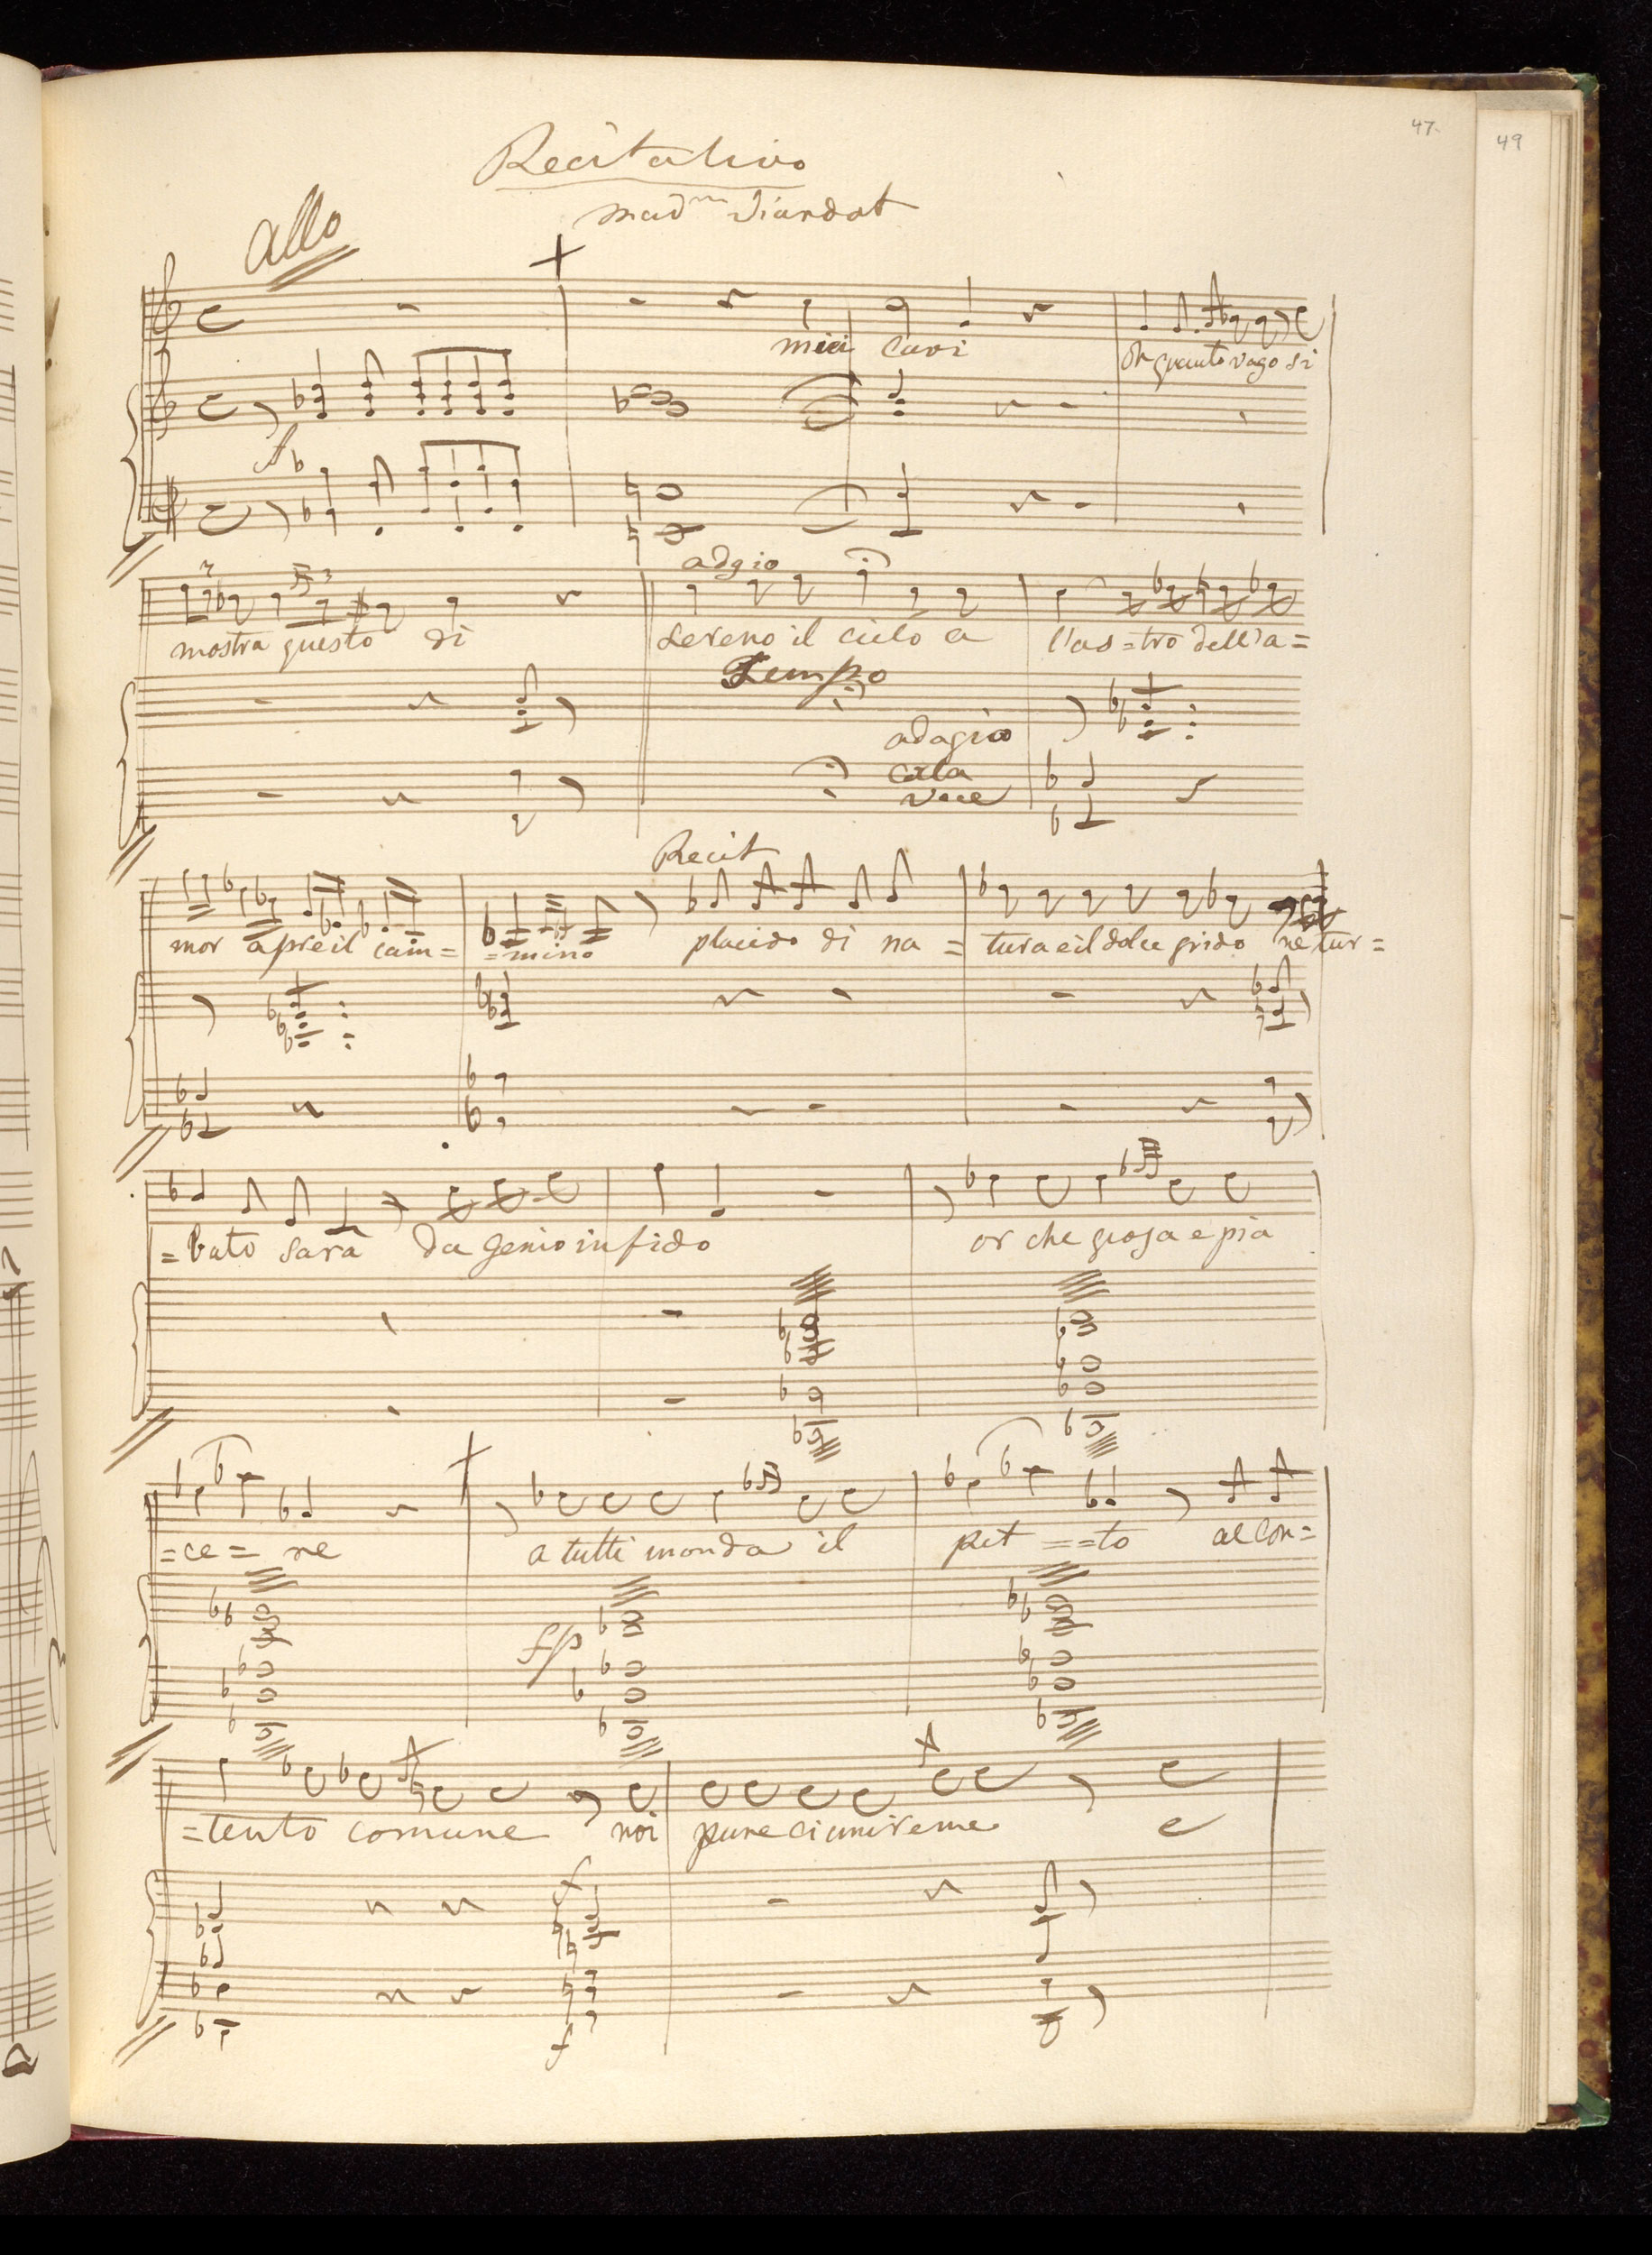 47.
49
Recitativo
mad^m Viardot
allo
miei cari or quanto vago si
f
adgio
mostra questo di sereno il cielo e l'as=tro dell'a=
Tempo
adagio
cola
voce
Recit
mor apre il cam= =mino placido di na= tura e il dolce grido ne tur=
=bato sarà da genio infido or che gioja e pia
=ce= re a tutti inonda il pet==to al con=
fp
=tento comune noi pure ci uniremo e
f
f